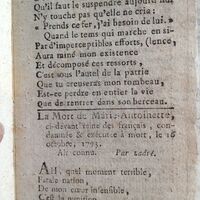 qu'il faut le suspendre aujourd'hui
N'y touche pas qu'elle ne cria:
" Prends ce fer, j'ai besoin de lui. »
Quand le tems qui marche en si-
Par d'imperceptibles efforts, (lence,
Aura miné mon existence
Et décomposé ces ressorts,
C'est sous l'autel de la patrie
Que tu creuseras mon tombeau,
Est-ce perdre en entier la vie
Que de rentrer dans son berceau.
La Mort de Marie-Antoinette,
ci-devant reine des français, con-
damnée & exécutée à mort, le 16
octobre, 1793.
Air connu. Par Ladré.
AH, quel moment terrible,
Fatale nation,
De mon cœur insensible,
C'est la punition